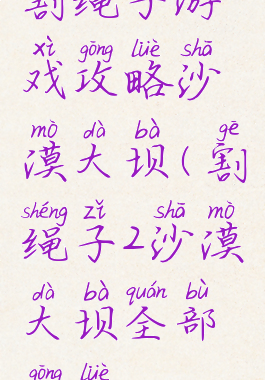 割绳子游
xì gōng lüè shā
戏攻略沙
mò dà bà gē
漠大坝(割
shéng zǐ shā mò
绳子2沙漠
dà bà quán bù
大坝全部
gōng lüè